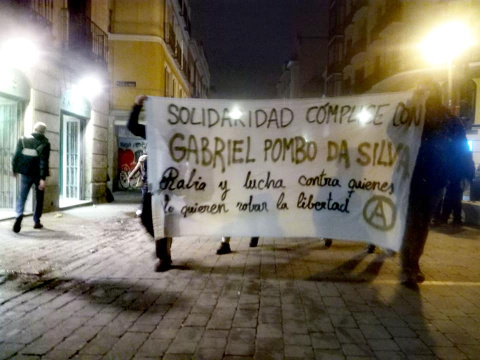 SOLIDARIDAD CÓMPLICE CON
GABRIEL POMBO DA SILVA
Rabia y lucha contra quienes
le quieren robar la libertad
A